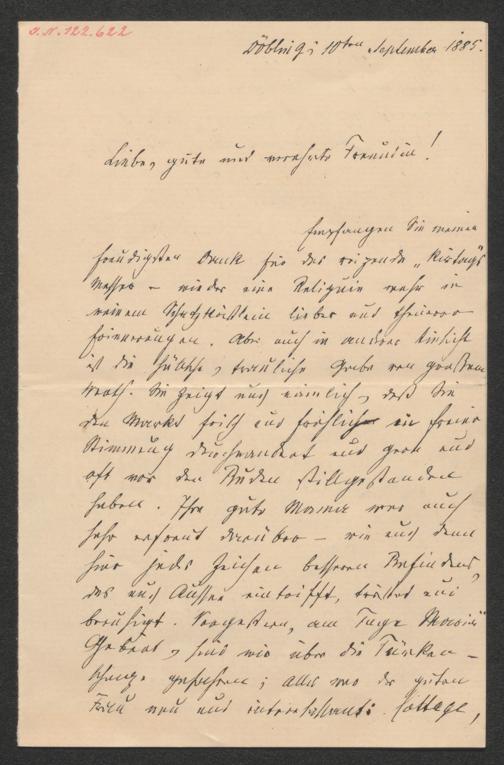 I.N. 122.622
Döbling, 10ten September 1885.
Liebe, gute und verehrte Freundin!
Empfangen Sie meinen
freudigsten Dank für das reizende „Kirtags“
Messer – wieder eine Reliquie mehr in
meinem Schatzkästlein lieber und theuerer
Erinnerungen. Aber auch in anderer Hinsicht
ist die hübsche, trauliche Gabe von großem
Werth. Sie zeigt uns nämlich, daß Sie
den Markt frisch und fröhlich in freier
Stimmung durchwandert und gern und
oft vor den Buden stillgestanden
haben. Ihre gute Mama war auch
sehr erfreut darüber – wie uns denn
hier jedes Zeichen besseren Befindens,
das aus Aussee eintrifft, tröstet und
beruhigt. Vorgestern, am Tage Mariä
Geburt, sind wir über die Türken-
schanze gefahren; alles war der guten
Frau neu und interessant: Cottage,